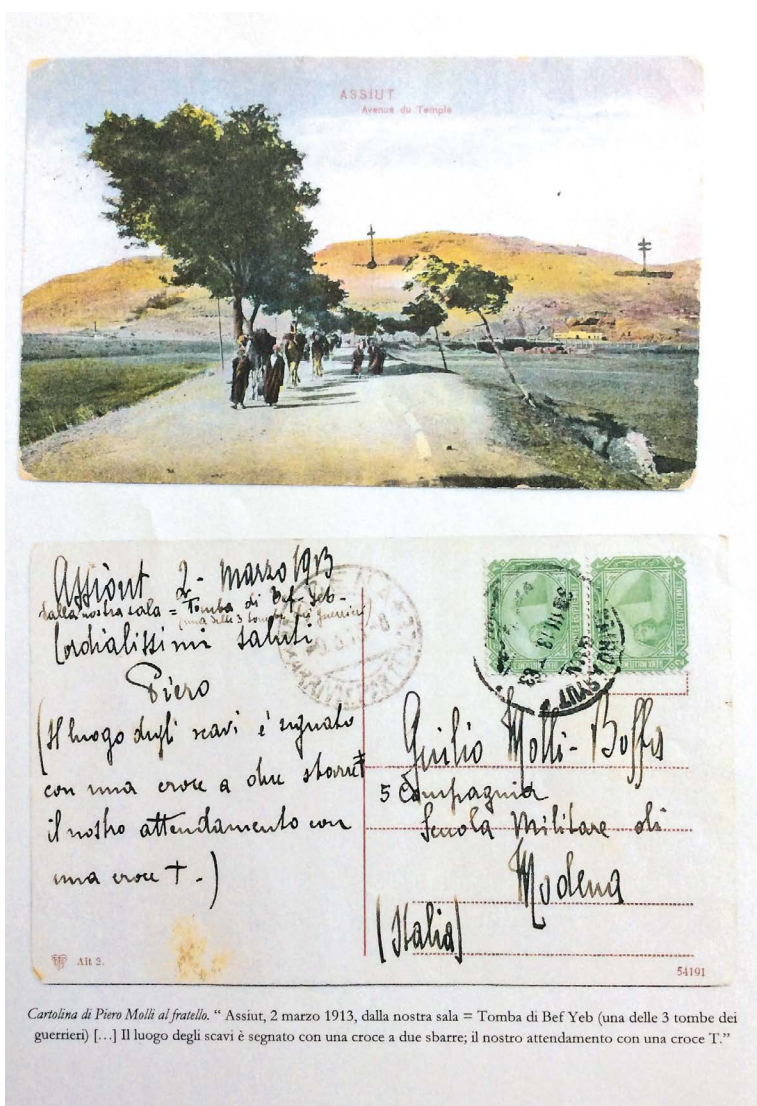 ASSIUT
Avenue du Temple
Assiout 2 - Marzo 1913
dalla nostra sala = Tomba di Bef-Yeb -
(una delle 3 tombe dei guerrieri)
Cordialissimi saluti
Piero
(Il luogo degli scavi è segnato
con una croce a due sbarre ‡
il nostro attendamento con
una croce † - )
Giulio Molli-Boffa
5 Compagnia
Scuola Militare di
Modena
(Italia)
Alt 2.
54191
Cartolina di Piero Molli al fratello. “ Assiut, 2 marzo 1913, dalla nostra sala = Tomba di Bef Yeb (una delle 3 tombe dei
guerrieri) […] Il luogo degli scavi è segnato con una croce a due sbarre; il nostro attendamento con una croce T.”